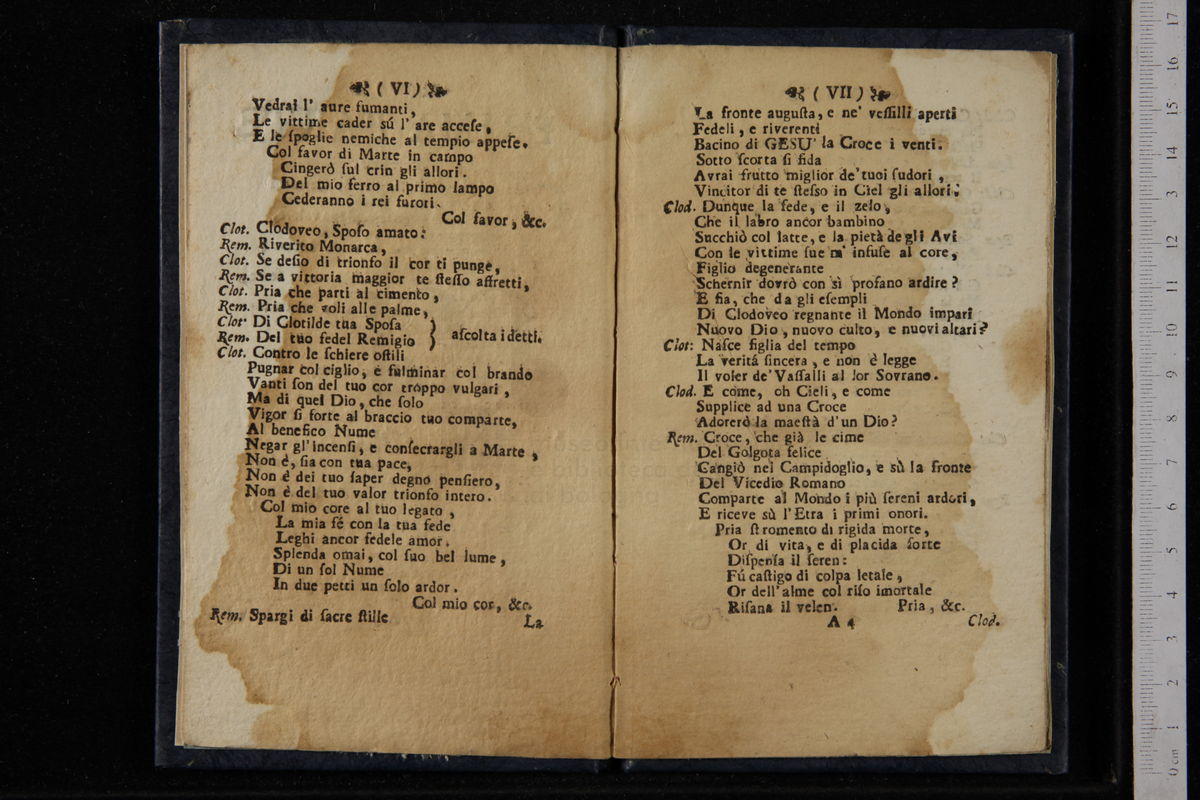 ( VI )
Vedrai l' aure fumanti,
Le vittime cader sú l' are acceſe,
E le ſpoglie nemiche al tempio appeſe.
Col favor di Marte in campo
Cingerò ſul crin gli allori.
Del mio ferro al primo lampo
Cederanno i rei furori.
Col favor, &c.
Clot. Clodoveo, Spoſo amato:
Rem. Riverito Monarca,
Clot. Se deſio di trionfo il cor ti punge,
Rem. Se a vittoria maggior te ſteſſo affretti,
Clot. Pria che parti al cimento,
Rem. Pria che voli alle palme,
Clot. Di Clotilde tua Spoſa
Rem. Del tuo fedel Remigio } aſcolta i detti.
Clot. Contro le ſchiere oſtili
Pugnar col ciglio, e fulminar col brando
Vanti ſon del tuo cor tròppo vulgari,
Ma di quel Dio, che ſolo
Vigor ſi forte al braccio tuo comparte,
Al benefico Nume
Negar gl'incenſi, e conſecrargli a Marte,
Non è, ſia con tua pace,
Non è dei tuo ſaper degno penſiero,
Non è del tuo valor trionfo intero.
Col mio core al tuo legato,
La mia fé con la tua fede
Leghi ancor fedele amor.
Splenda omai, col ſuo bel lume,
Di un ſol Nume
In due petti un ſolo ardor.
Col mio cor, &c.
Rem. Spargi di ſacre ſtille
La
( VII )
La fronte auguſta, e ne' veſſilli aperti
Fedeli, e riverenti
Bacino di GESU' la Croce i venti.
Sotto ſcorta ſi fida
Avrai frutto miglior de'tuoi ſudori,
Vincitor di te ſteſso in Ciel gli allori.
Clod. Dunque la fede, e il zelo,
Che il labro ancor bambino
Succhiò col latte, e la pietà degli Avi
Con le vittime ſue m' inſuſe al core,
Figlio degenerante
Schernir dovrò con sì profano ardire?
E fia, che da gli eſempli
Di Clodoveo regnante il Mondo impari
Nuovo Dio, nuovo culto, e nuovi altari?
Clot: Naſce figlia del tempo
La verità ſincera, e non è legge
Il voler de'Vaſſalli al lor Sovrano.
Clod. E come, oh Cieli, e come
Supplice ad una Croce
Adorerò la maeſtà d'un Dio?
Rem. Croce, che già le cime
Del Golgota felice
Cangiò nel Campidoglio, e sù la fronte
Del Vicedio Romano
Comparte al Mondo i più ſereni ardori,
E riceve sù l'Etra i primi onori.
Pria ſtromento di rigida morte,
Or di vita, e di placida ſorte
Diſpenſa il ſeren:
Fú caſtigo di colpa letale,
Or dell'alme col riſo imortale
Riſana il velen. Pria, &c.
A 4
Clod.